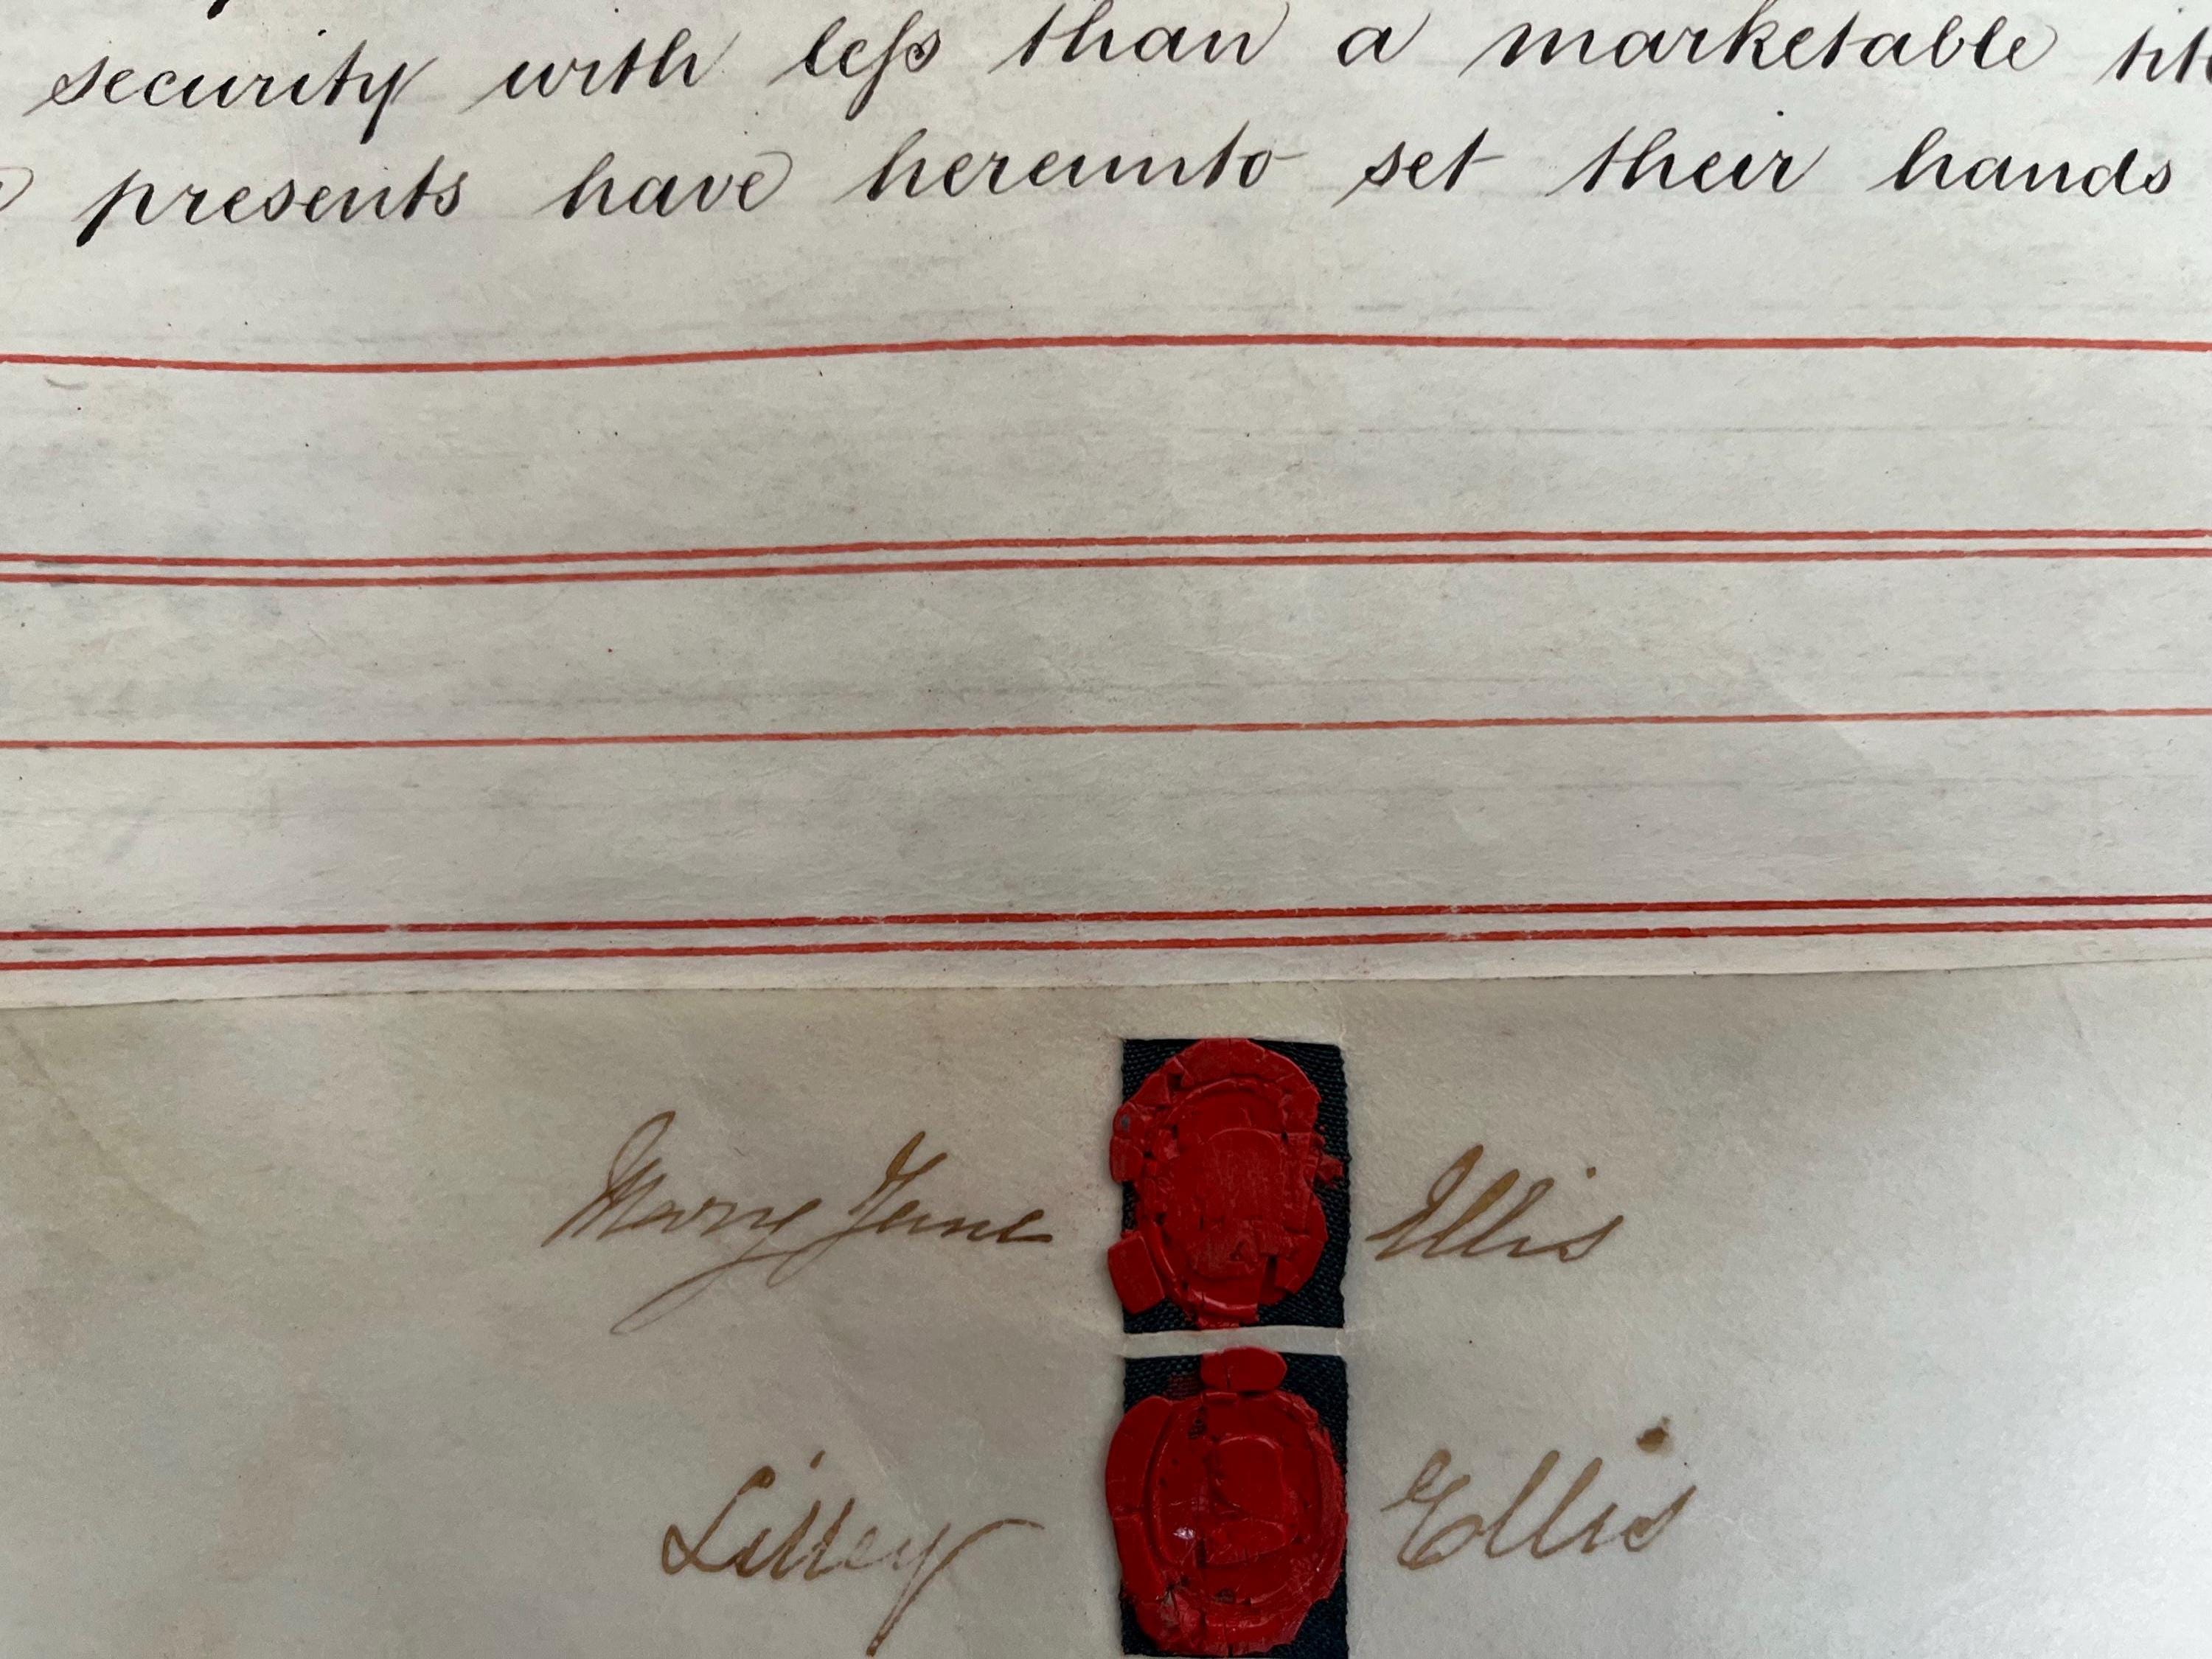 security with leſs than a marketable
presents have hereunto set their hands
Mary Jane Ellis
Lilley Ellis